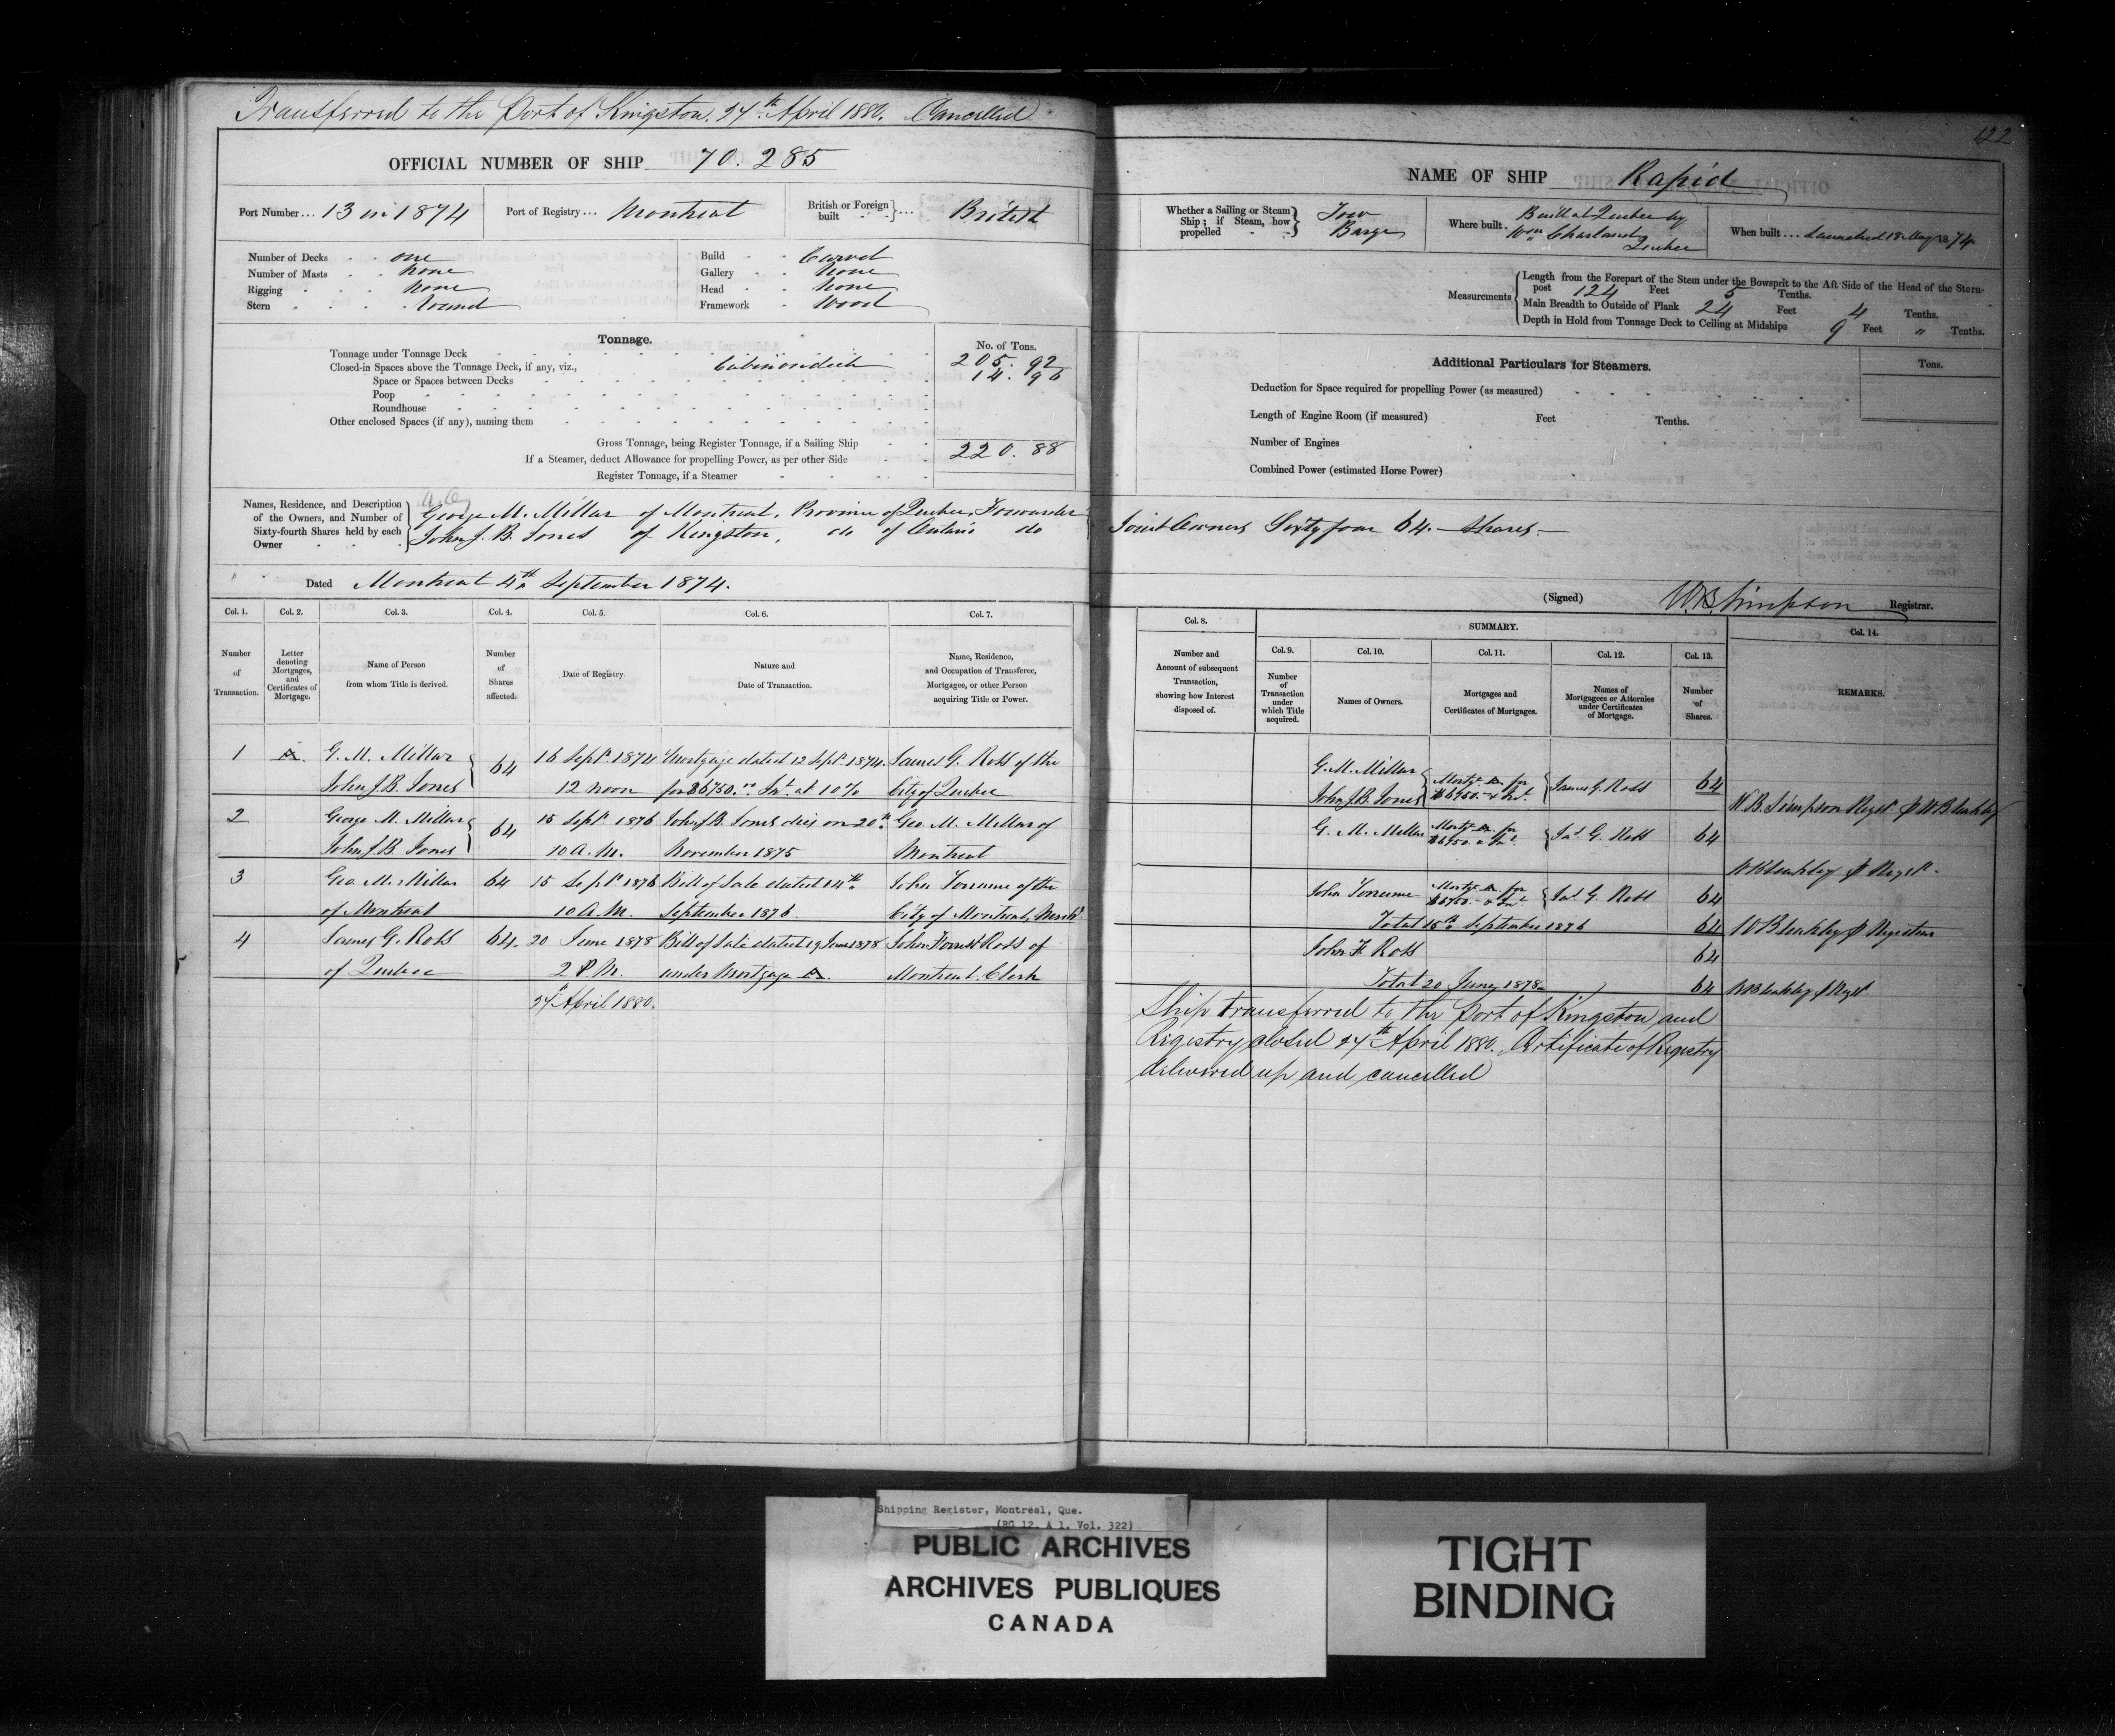 Transferred to the Port of Kingston. 27th April 1880. Cancelled
122
OFFICIAL NUMBER OF SHIP 70.285
Port Number... 13 in 1874 Port of Registry... Montreal British or Foreign built } ... British
Number of Decks one
Number of Masts none
Rigging none
Stern round
Build Carvel
Gallery none
Head none
Framework Wood
Tonnage.
No. of Tons.
Tonnage under Tonnage Deck 205.92
Closed-in Spaces above the Tonnage Deck, if any, viz., Cabin on deck 14.96
Space or Spaces between Decks
Poop
Roundhouse
Other enclosed Spaces (if any), naming them
Gross Tonnage, being Register Tonnage, if a Sailing Ship 220.88
If a Steamer, deduct Allowance for propelling Power, as per other Side
Register Tonnage, if a Steamer
Names, Residence, and Description of the Owners, and Number of Sixty-fourth Shares held by each Owner
George M. Millar of Montreal, Province of Quebec, Forwarder
John J. B. Jones of Kingston, do of Ontario do
Dated Montreal 4th September 1874.
NAME OF SHIP Rapid
Whether a Sailing or Steam Ship; if Steam, how propelled } Tow Barge
Where built. Built at Quebec by Wm Charland, Quebec
When built... Launched 18 May 1874
Measurements
Length from the Forepart of the Stem under the Bowsprit to the Aft Side of the Head of the Stern-
post 124 Feet 5 Tenths.
Main Breadth to Outside of Plank 24 Feet 4 Tenths.
Depth in Hold from Tonnage Deck to Ceiling at Midships 9 Feet " Tenths.
Additional Particulars for Steamers.
Tons.
Deduction for Space required for propelling Power (as measured)
Length of Engine Room (if measured) Feet Tenths.
Number of Engines
Combined Power (estimated Horse Power)
Joint Owners Sixty four 64 — Shares —
(Signed) W B Simpson Registrar.
Col. 1. Col. 2. Col. 3. Col. 4. Col. 5. Col. 6. Col. 7.
Number of Transaction.
Letter denoting Mortgages, and Certificates of Mortgage.
Name of Person from whom Title is derived.
Number of Shares affected.
Date of Registry.
Nature and Date of Transaction.
Name, Residence, and Occupation of Transferee, Mortgagee, or other Person acquiring Title or Power.
1 A. G. M. Millar 64 16 Sept. 1874 Mortgage dated 12 Sept. 1874. James G. Ross of the
John J. B. Jones 12 noon for $6750.00 Int. at 10% City of Quebec
2 George M. Millar 64 15 Sept. 1876 John J. B. Jones dies on 20th Geo M. Millar of
John J. B. Jones 10 A.M. November 1875 Montreal
3 Geo M. Millar 64 15 Sept. 1876 Bill of Sale dated 14th John Torrance of the
of Montreal 10 A.M. September 1876 City of Montreal, Mercht
4 James G. Ross 64. 20 June 1878 Bill of Sale dated 19 June 1878 John Forrest Ross of
of Quebec 2 P.M. under Mortgage A. Montreal. Clerk
27 April 1880.
Col. 8. SUMMARY. Col. 14.
Col. 9. Col. 10. Col. 11. Col. 12. Col. 13.
Number and Account of subsequent Transaction, showing how Interest disposed of.
Number of Transaction under which Title acquired.
Names of Owners.
Mortgages and Certificates of Mortgages.
Names of Mortgagees or Attornies under Certificates of Mortgage.
Number of Shares.
REMARKS.
G. M. Millar
John J. B. Jones Mortge A. for $6750. & Int. James G. Ross 64
W. B. Simpson Regr. W Bleakley
G. M. Millar Mortge A. for $6750. & Int. Jas. G. Ross 64
W Bleakley Regr.
John Torrance Mortge A. for $6750. & Int Jas. G. Ross 64
Total 15th September 1876 64 W Bleakley Registrar
John F. Ross 64
Total 20 June 1878 64 W Bleakley Regr.
Ship transferred to the Port of Kingston and
Registry closed 27th April 1880. Certificate of Registry
delivered up and cancelled
Shipping Register, Montreal, Que.
(RG 12, A 1, Vol. 322)
PUBLIC ARCHIVES
ARCHIVES PUBLIQUES
CANADA
TIGHT
BINDING